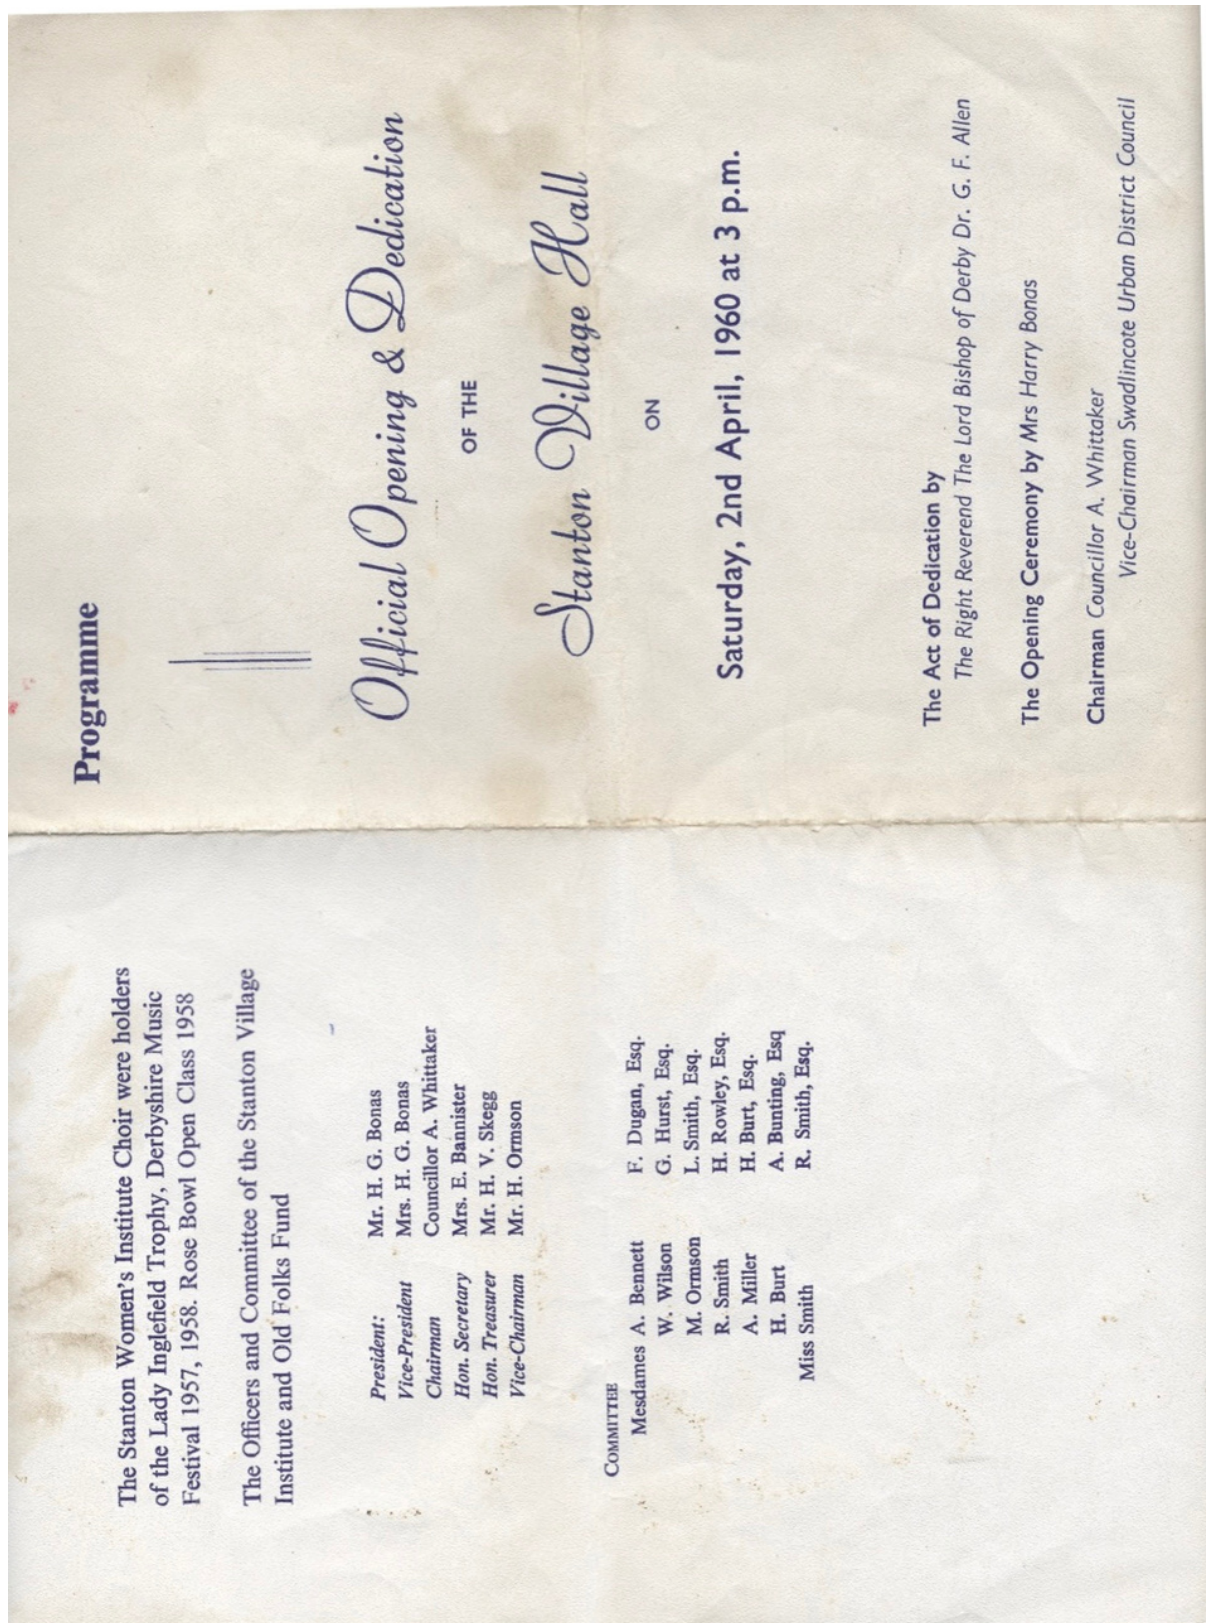 The Stanton Women's Institute Choir were holders
of the Lady Inglefield Trophy, Derbyshire Music
Festival 1957, 1958. Rose Bowl Open Class 1958
The Officers and Committee of the Stanton Village
Institute and Old Folks Fund
President: Mr. H. G. Bonas
Vice-President Mrs. H. G. Bonas
Chairman Councillor A. Whittaker
Hon. Secretary Mrs. E. Bannister
Hon. Treasurer Mr. H. V. Skegg
Vice-Chairman Mr. H. Ormson
COMMITTEE
Mesdames A. Bennett F. Dugan, Esq.
W. Wilson G. Hurst, Esq.
M. Ormson L. Smith, Esq.
R. Smith H. Rowley, Esq.
A. Miller H. Burt, Esq.
H. Burt A. Bunting, Esq
Miss Smith R. Smith, Esq.
Programme
Official Opening & Dedication
OF THE
Stanton Village Hall
ON
Saturday, 2nd April, 1960 at 3 p.m.
The Act of Dedication by
The Right Reverend The Lord Bishop of Derby Dr. G. F. Allen
The Opening Ceremony by Mrs Harry Bonas
Chairman Councillor A. Whittaker
Vice-Chairman Swadlincote Urban District Council